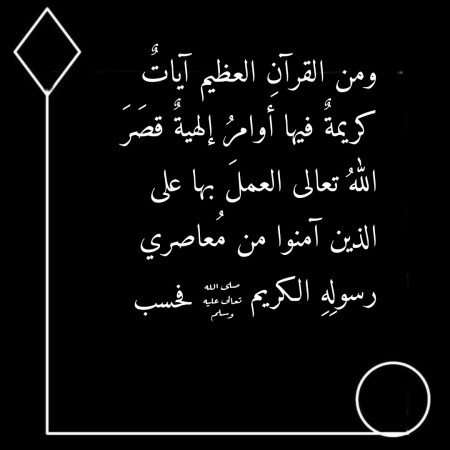 ومن القرآنِ العظيم آياتٌ
كريمةٌ فيها أوامرُ إلهيةٌ قصَرَ
اللهُ تعالى العملَ بها على
الذين آمنوا من مُعاصري
رسولِهِ الكريم صلى الله تعالى عليه وسلم فحسب